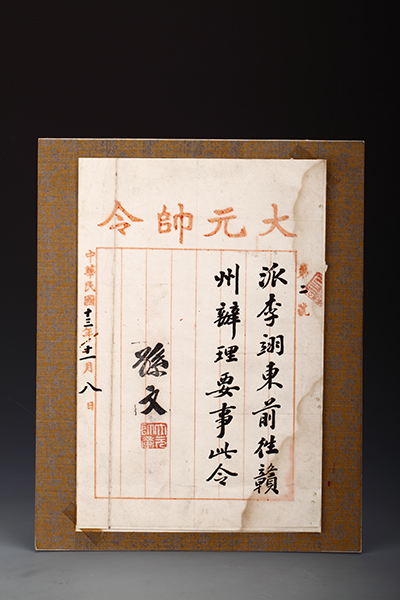 大元帥令
第二號
派李翊東前往贛
州辦理要事此令
孫文
大元
帥章
中華民國十三年十一月八日